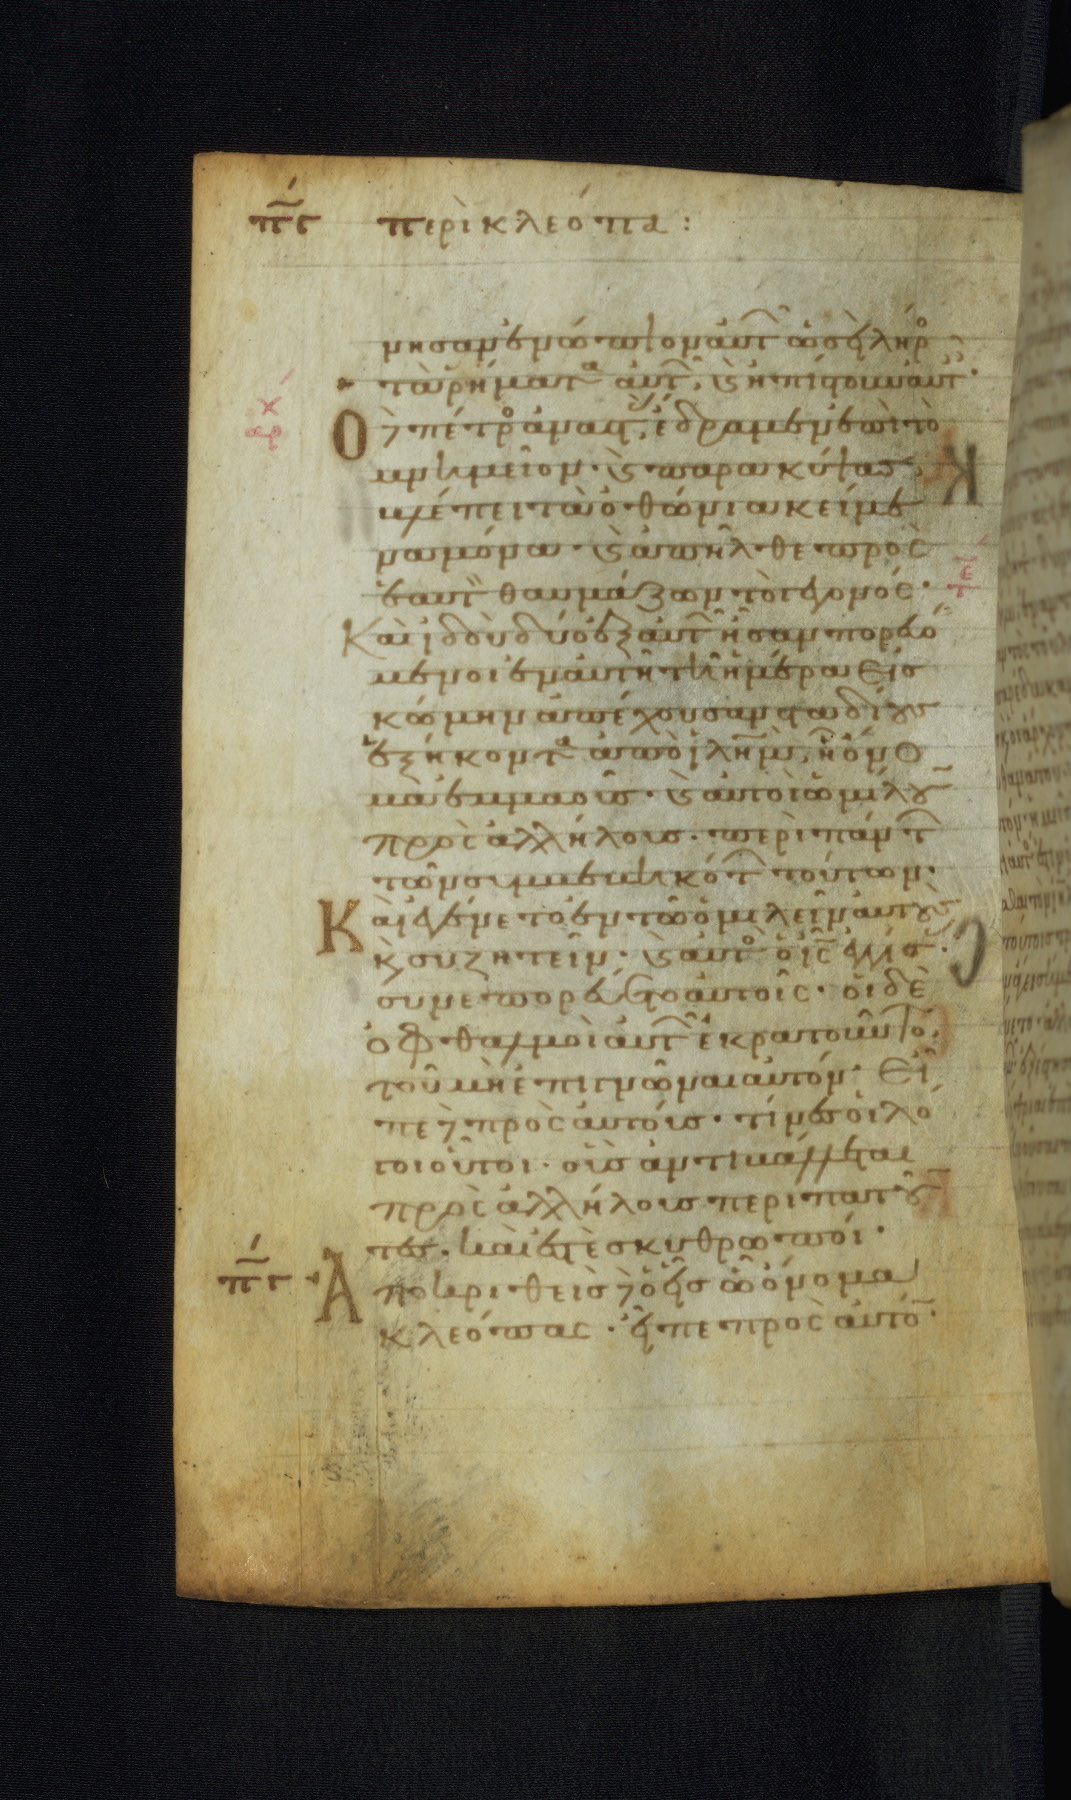 πγ περὶ κλεόπα:
νησαν ἐνώπιον αὐτ ὡσεὶ λῆρο
τὰ ῥήματα αὐτ, κ ἠπίστουν αὐτ.
Ὁ δὲ πέτρο ἀναστ ἔδραμεν ἐπὶ τὸ
μνημεῖον. κ παρακύψας
βλέπει τὰ ὀθόνια κείμε
να μόνα. κ ἀπῆλθε πρὸς
ἑαυτ θαυμάζων τὸ γεγονός.
Καὶ ἰδοὺ δύο ἐξ αὐτ ἦσαν πορευό
μενοι ἐν αὐτῆ τῆ ἡμέρα εἰς
κώμην ἀπέχουσαν σταδίους
ἑξήκοντα ἀπὸ ἱλημ, ἧ ὄνο
μα ἐμμαούς. κ αὐτοὶ ὡμίλουν
πρὸς ἀλλήλους. περὶ πάντ
τῶν συμβεβηκότ τούτων.
Καὶ ἐγένετο ἐν τῶ ὁμιλεῖν αὐτοὺς
κ συζητεῖν. κ αὐτὸ ὁ ις ἐγγίσας.
συνεπορεύετο αὐτοῖς. οἱ δὲ
ὀφθαλμοὶ αὐτ ἐκρατοῦντο.
τοῦ μὴ ἐπιγνῶναι αὐτόν. Εἶ
πε δὲ πρὸς αὐτούς. τίνες οἱ λό
γοι οὗτοι. οὓς ἀντιβάλλεται
πρὸς ἀλλήλους περιπατοῦν
τες. καὶ ἐστὲ σκυθρωποί.
πγ Ἀποκριθεὶς δὲ ὁ εἷς ὧ ὄνομα
κλεόπας. εἶπε πρὸς αὐτό.